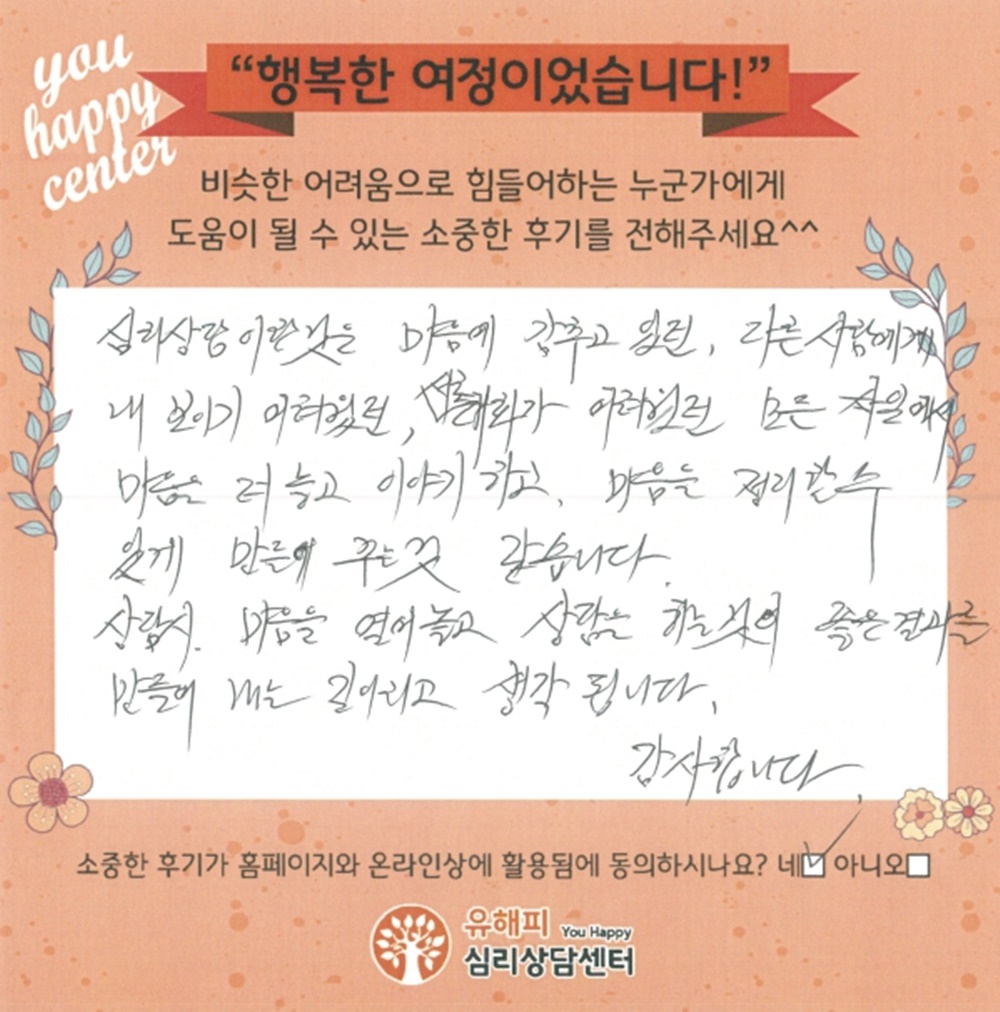 you
happy
center
“행복한 여정이었습니다!”
비슷한 어려움으로 힘들어하는 누군가에게
도움이 될 수 있는 소중한 후기를 전해주세요^^
심리상담이란것은 마음에 감추고 있던, 다른사람에게
내 보이기 어려웠던, 대화가 어려웠던 모든 것을
마음을 터 놓고 이야기 하고, 마음을 정리할 수
있게 만들어 주는것 같습니다.
상담시. 마음을 열어 놓고 상담을 하는 것이 좋은결과를
만들어 내는 길이라고 생각 됩니다.
감사합니다.
소중한 후기가 홈페이지와 온라인상에 활용됨에 동의하시나요? 네 아니오
유해피 You Happy
심리상담센터